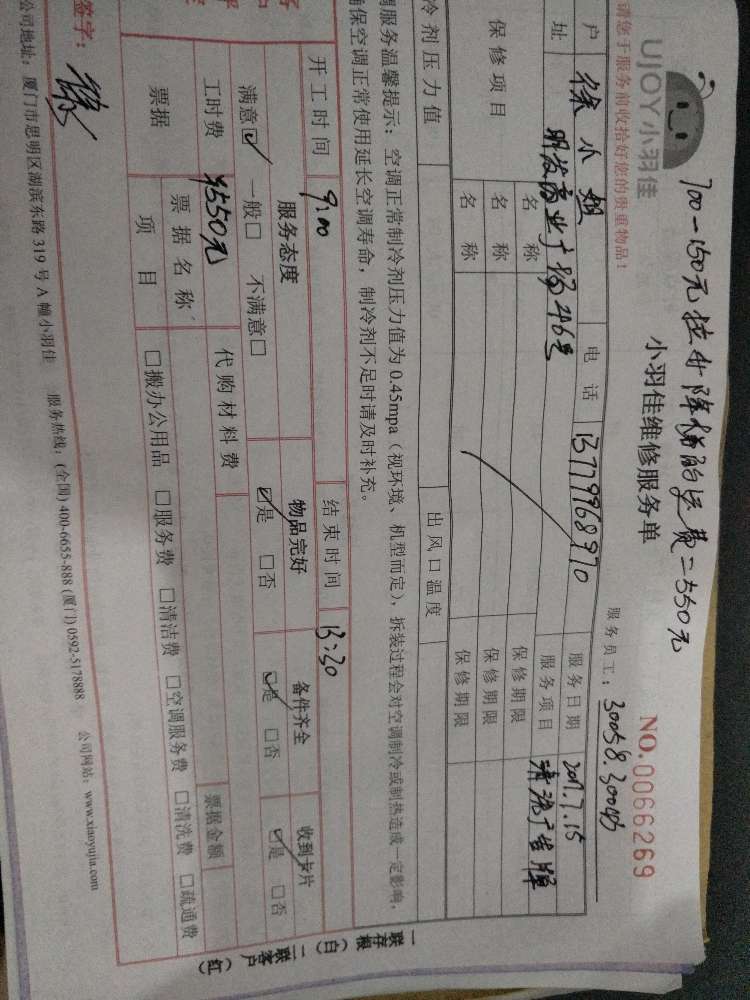 700-150元拉升降梯的运费=550元
UJOY小羽佳
小羽佳维修服务单
NO.0066269
请您于服务前收拾好您的贵重物品!
服务员工:30058.30043
户 徐小姐 电话 13779968970 服务日期 2017.7.15
址 明发商业广场246号 服务项目 清洗广告牌
保修项目 名称 保修期限
名称 保修期限
名称 保修期限
冷剂压力值 出风口温度
调服务温馨提示:空调正常制冷剂压力值为0.45mpa(视环境、机型而定),拆装过程会对空调制冷或制热造成一定影响,
确保空调正常使用延长空调寿命,制冷剂不足时请及时补充。
开工时间 9:00 结束时间 13:30
服务态度 物品完好 备件齐全 收到卡片
满意☑ 一般□ 不满意□ ☑是 □否 ☑是 □否 ☑是 □否
工时费 ¥550元 代购材料费
票据 票据名称 票据金额
项目 □搬办公用品 □服务费 □清洁费 □空调服务费 □清洗费 □疏通费
签字: 徐
公司地址:厦门市思明区湖滨东路319号A幢小羽佳 服务热线:(全国)400-6655-888(厦门)0592-5178888 公司网站:www.xiaoyujia.com
一联存根(白) 二联客户(红)